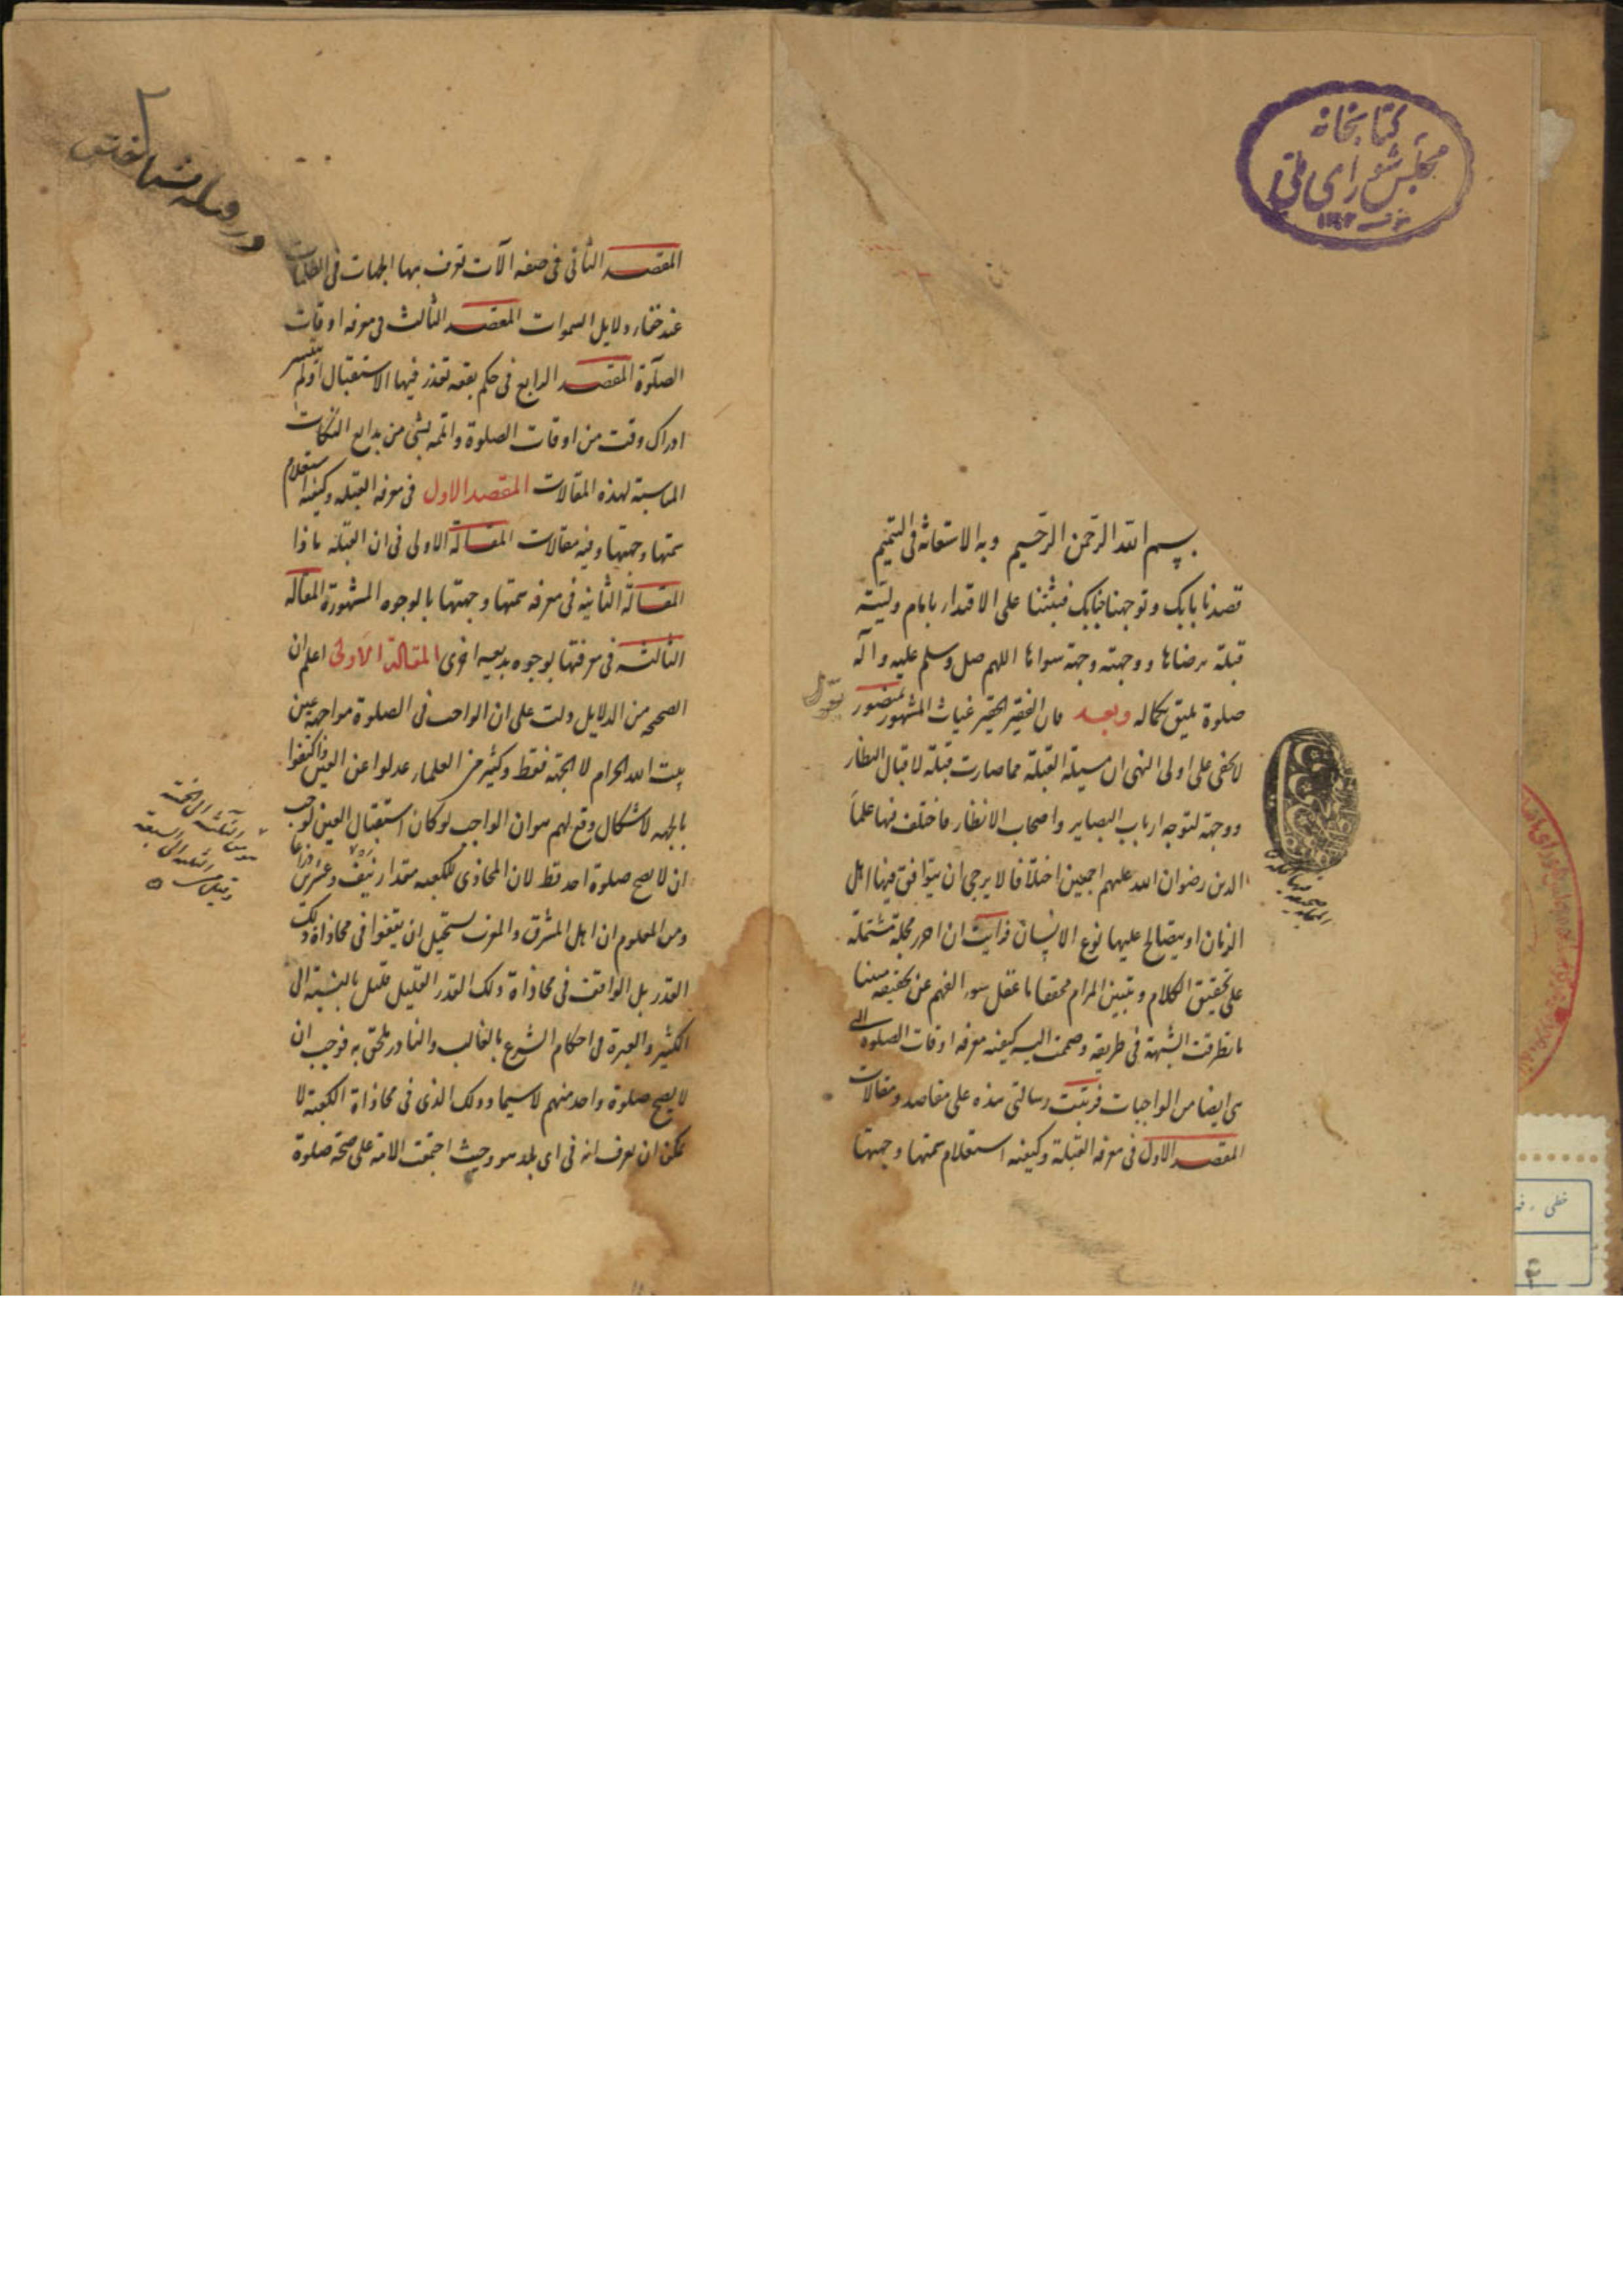 كتابخانه
مجلس شورای ملی
بسم الله الرحمن الرحیم وبه الاستعانة فی التتمیم
قصدنا بابک وتوجهنا جنابک فبثتنا علی الاقتدار بامام ولیته
قبلة یرضاها ووجهته وجهة سواها اللهم صل وسلم علیه وآله
صلوة یلیق بکماله وبعد فان الفقیر الحقیر غیاث المشهور بمنصور یقول
لا یخفی علی اولی النهی ان مسیلة القبلة مما صارت قبلة لاقبال النظار
ووجهة لتوجه ارباب البصایر واصحاب الانظار فاختلف فیها علماء
الدین رضوان الله علیهم اجمعین اختلافا لا یرجی ان یتوافق فیها اهل
الزمان او یتصالح علیها نوع الانسان فرایت ان احرر مجلة مشتملة
علی تحقیق الکلام وتبیین المرام محققا ما غفل سور الفهم عن تحقیقه مبینا
ما تطرقت الشبهة فی طریقه وضممت الیه کیفیه معرفه اوقات الصلوة التی
هی ایضا من الواجبات فرتبت رسالتی هذه علی مقاصد ومقالات
المقصد الاول فی معرفه القبلة وکیفیه استعلام سمتها وجهتها
در قبله شناختن
المقصد الثانی فی صفه آلات تعرف بها الجهات فی الظلمات
عند خفاء دلایل السموات المقصد الثالث فی معرفه اوقات
الصلوة المقصد الرابع فی حکم بقعه تعذر فیها الاستقبال او لم یتیسر
ادراک وقت من اوقات الصلوة واتمه بشی من بدایع النکات
المناسبة لهذه المقالات المقصد الاول فی معرفه القبله وکیفیه استعلام
سمتها وجهتها وفیه مقالات المقالة الاولی فی ان القبلة ماذا
المقالة الثانیه فی معرفه سمتها وجهتها بالوجوه المشهورة المقاله
الثالثه فی معرفتها بوجوه بدیعه اخری المقالة الاولی اعلم ان
الصحیح من الدلایل دلت علی ان الواجب فی الصلوة مواجهة عین
بیت الله الحرام لا الجهة فقط وکثیر من العلماء عدلوا عن العین واکتفوا
بالجهه لاشکال وقع لهم هو ان الواجب لو کان استقبال العین لوجب
ان لا یصح صلوة احد قط لان المحاذی للکعبه مقدار نیف وعشرین ذراعا
ومن المعلوم ان اهل المشرق والمغرب یستحیل ان یتفقوا فی محاذاة ذلک
القدر بل الواقف فی محاذاة ذلک القدر القلیل قلیل بالنسبة الی
الکثیر والعبرة فی احکام الشرع بالغالب والنادر یلحق به فوجب ان
لا یصح صلوة واحد منهم لا سیما وذلک الذی فی محاذاة الکعبة لا
یمکن ان یعرف انه فی ای بلد هو وحیث اجتمعت الامة علی صحة صلوة